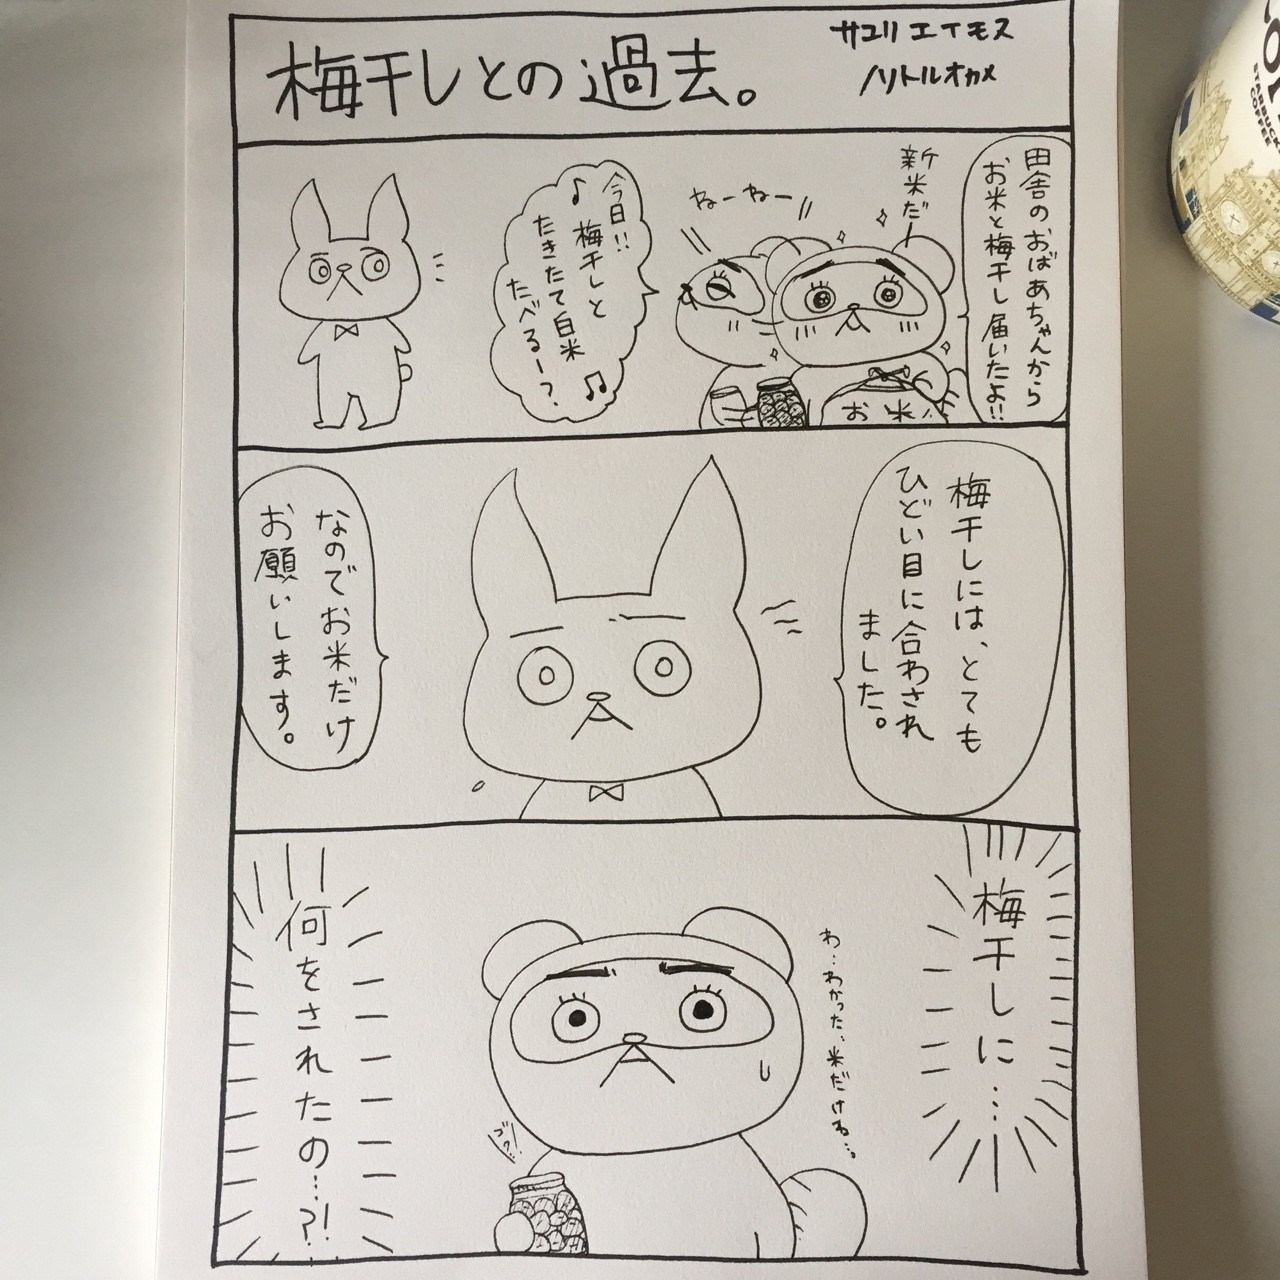 梅干しとの過去。
サユリ エイモス
ノリトルオカメ
田舎のおばあちゃんから
お米と梅干し届いたよ!!
新米だ
ねーねー
今日!!
梅干しと
たきたて白米
たべるー?
お米
梅干しには、とても
ひどい目に合わされ
ました。
なのでお米だけ
お願いします。
梅干しに…
わ…わかった、米だけね…。
何をされたの…?!
STARBUCKS
COFFEE